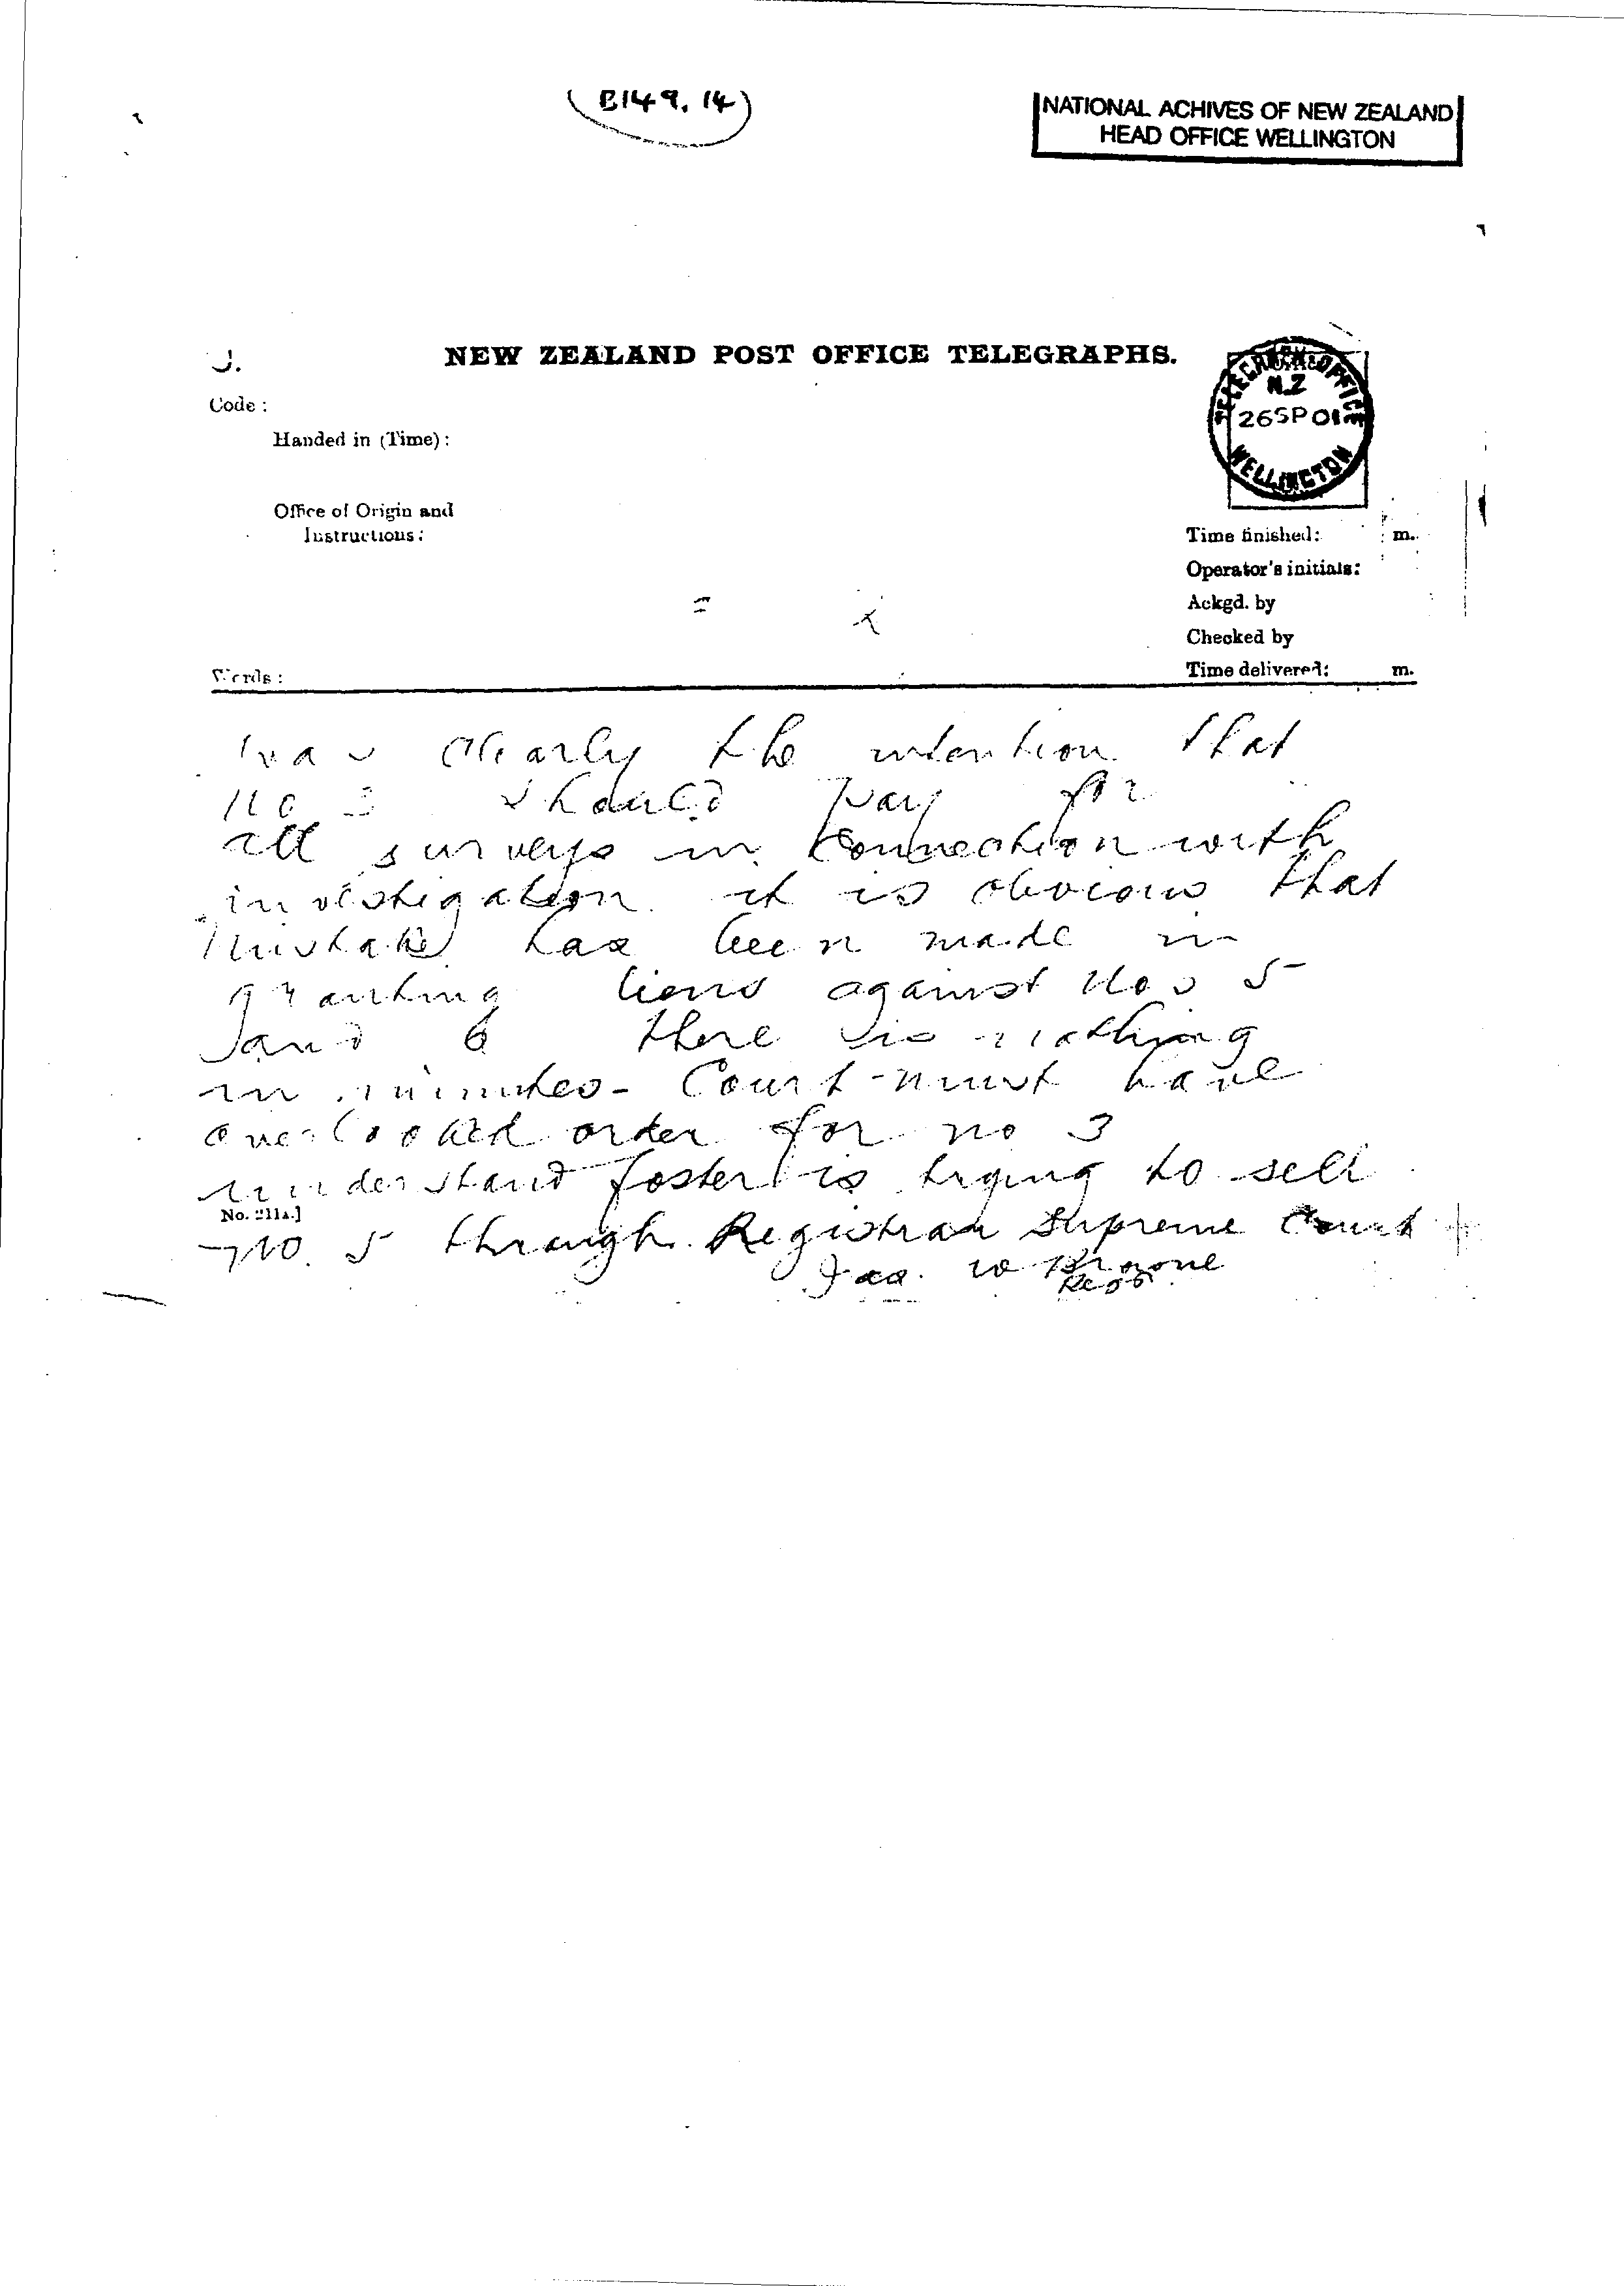 (B149. 14)
NATIONAL ACHIVES OF NEW ZEALAND
HEAD OFFICE WELLINGTON
NEW ZEALAND POST OFFICE TELEGRAPHS.
TELEGRAPH OFFICE
N.Z
26SP01
WELLINGTON
Code :
Handed in (Time) :
Office of Origin and
Instructions :
Time finished: m.
Operator's initials:
Ackgd. by
Checked by
Words :
Time delivered: m.
was clearly the intention that
no 3 should pay for
all surveys in connection with
investigation it is obvious that
mistake has been made in
granting liens against nos 5
and 6 there is nothing
in minutes - Court must have
overlooked order for no 3
understand foster is trying to sell
No. 211A.]
no. 5 through Registrar Supreme Court
Jas. W Browne